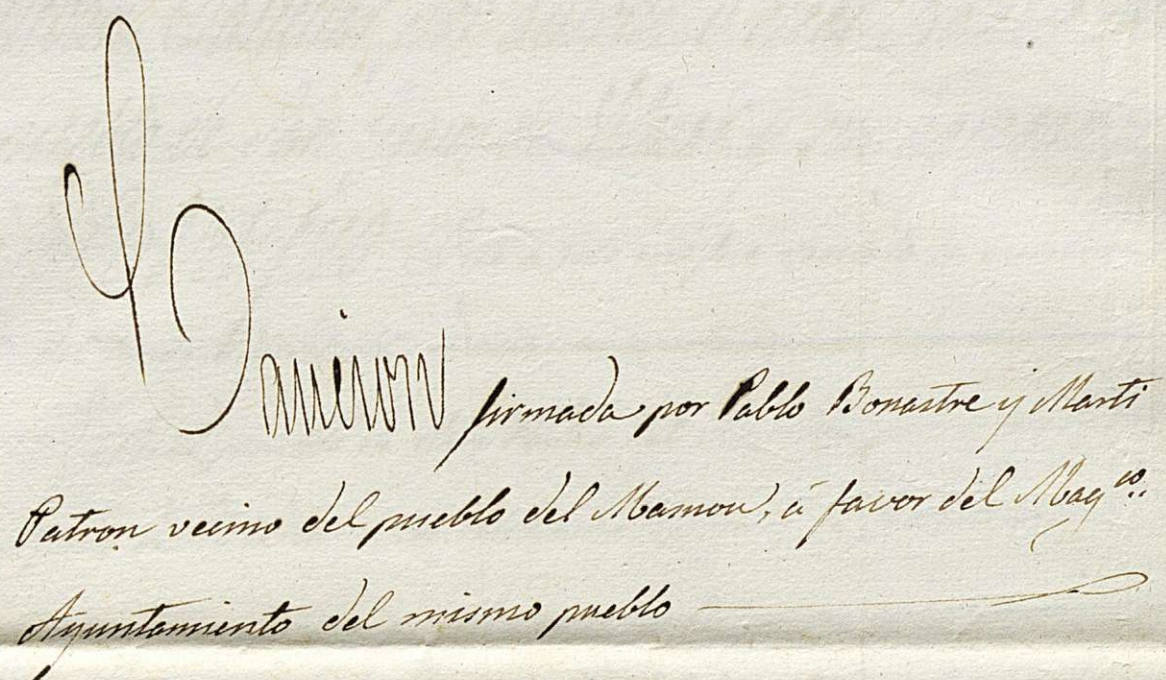 Caucion firmada por Pablo Bonastre y Marti
Patron vecino del pueblo del Masnou, á favor del Mag.ᶜᵒ
Ayuntamiento del mismo pueblo